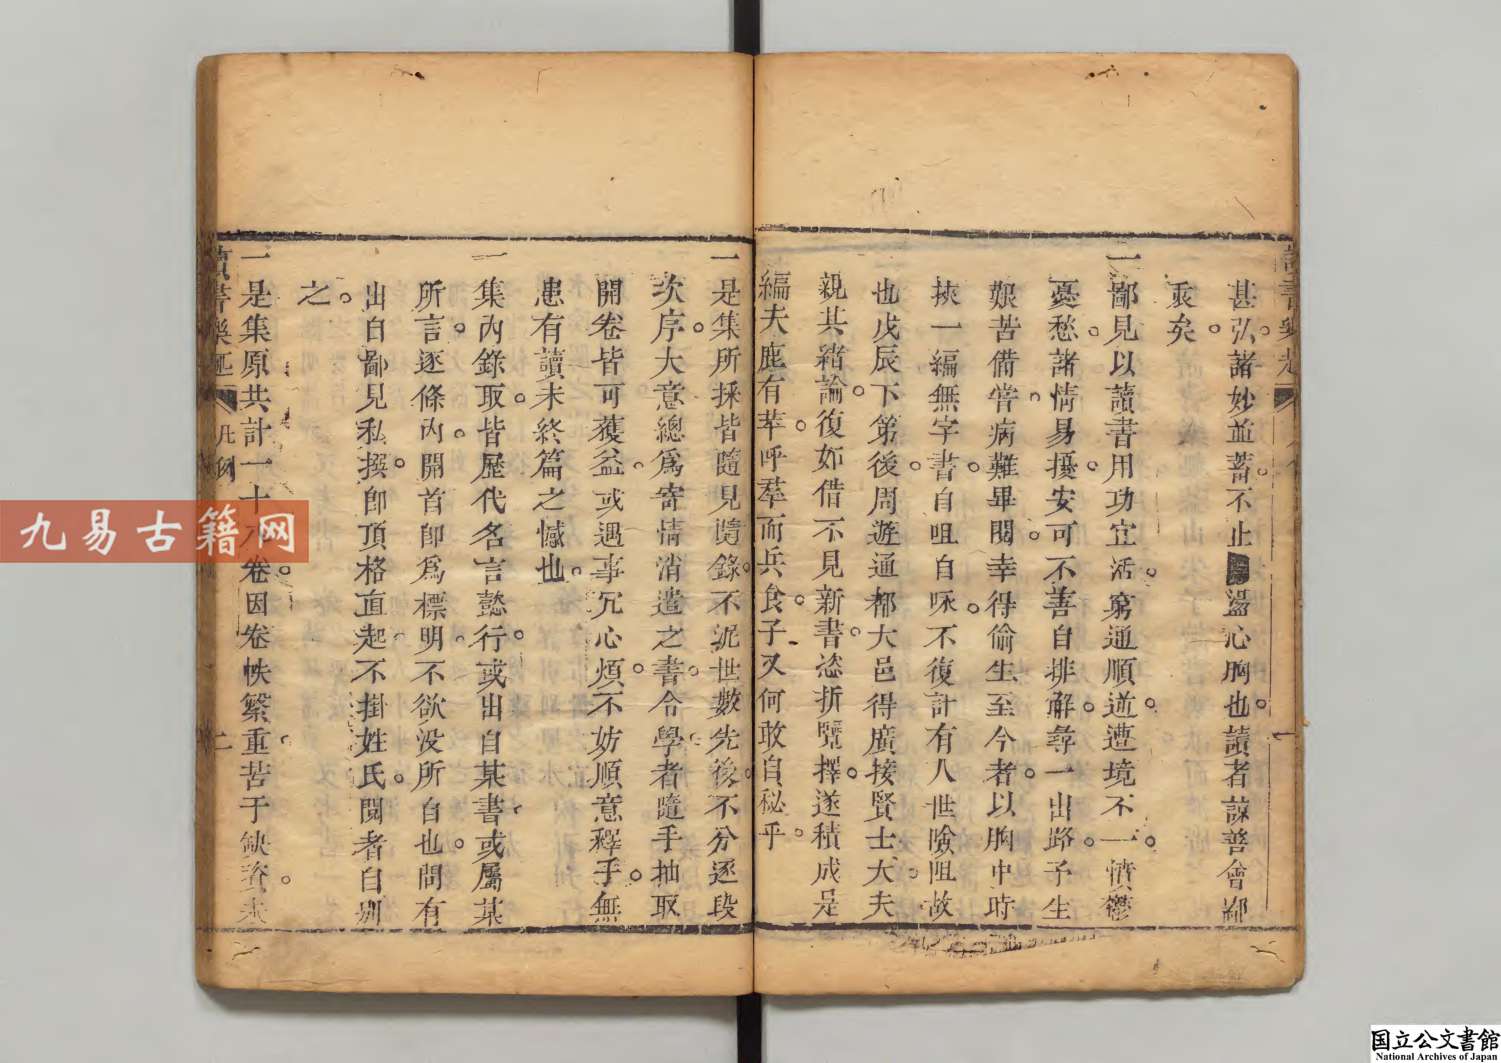 甚弘諸妙並蓄不止盪心胸也讀者諒善會鄙
衷矣
一鄙見以讀書用功宜活窮通順逆遭境不一憤鬱
憂愁諸情易擾安可不善自排解尋一出路予生
艱苦備嘗病難畢閱幸得偷生至今者以胸中時
挾一編無字書自咀自咏不復計有人世險阻故
也戊辰下第後周遊通都大邑得廣接賢士大夫
親其緒論復如借不見新書恣折覽擇遂積成是
編夫鹿有苹呼羣而共食予又何敢自秘乎
一是集所採皆隨見隨錄不泥世數先後不分逐段
次序大意總爲寄情消遣之書令學者隨手抽取
開卷皆可獲益或遇事冗心煩不妨順意釋手無
患有讀未終篇之憾也
一集內錄取皆歷代名言懿行或出自某書或屬某
所言逐條內開首即爲標明不欲没所自也間有
出自鄙見私撰即頂格直起不掛姓氏閱者自別
之
一是集原共計一十八卷因卷帙繁重苦于缺資未
讀書樂趣
凡例
二
九易古籍网
国立公文書館
National Archives of Japan